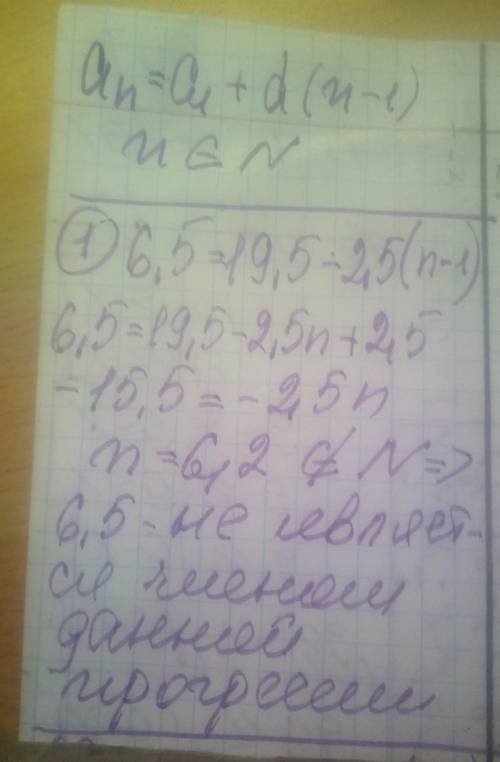 aₙ = a₁ + d(n-1)
n ∈ N
① 6,5 = 19,5 - 2,5(n-1)
6,5 = 19,5 - 2,5n + 2,5
-15,5 = -2,5n
n = 6,2 ∉ N =>
6,5 - не являет-
ся членом
данной
прогрессии